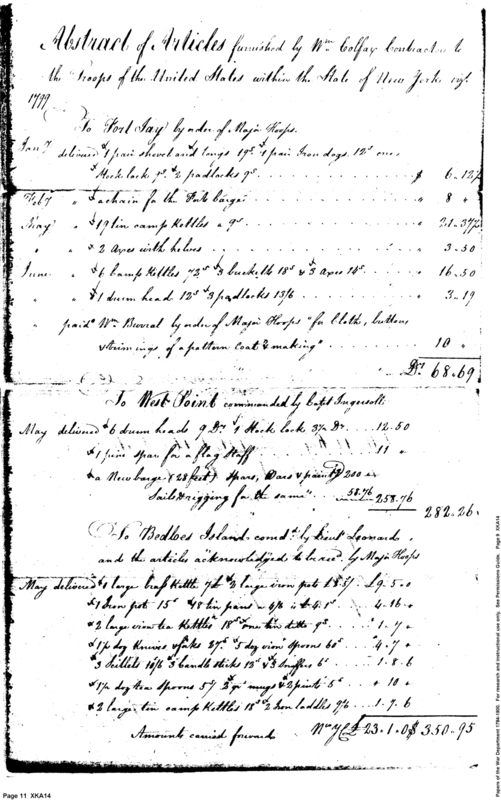 Abstract of Articles furnished by Wm Colfax Contractor to
the Troops of the United States within the State of New York
1799
To Fort Jay by order of Major Hoops.
Jany delivered 1 pair shovel and tongs 19s 1 pair Iron dogs. 12s one
Stock lock 9s 2 padlocks 9s $ 6.12½
Feby " a chain for the Fort barge " 8 "
May " 19 tin camp Kettles a 9s " 21.37½
" " 2 Axes with helves " 3.50
June " 6 Camp Kettles 72s 3 bucketts 18s & 3 Axes 14s " 16.50
" " 1 drum head 12s 3 padlocks 13/6 " 3.19
" paid Wm Burrial by order of Major Hoops "for Cloth, buttons
& trimings of a pattern Coat & making" 10 "
Drs 68.69
To West Point commanded by Capt Ingersoll
May delivered 6 drum heads 9 Drs 1 Stock lock 3½ Drs 12.50
1 pine spar for a flag staff 11 "
a New barge (28 feet) Spars, Oars & paint 200 "
Sails & rigging for the same" 58.76 258.76
282.26
To Bedloes Island comdd by Lieut Leonard
and the articles acknowledged to be recd by Major Hoops
May delivered 1 large brass Kettle 2 large iron pots £9.5.0
1 Iron pot 15s 18 tin pans a 4/6 4.16 "
2 large iron tea Kettles 18s one tin ditto 9s 1.7 "
1 dz knives & forks 27s 5 doz iron spoons 60s 4.7 "
3 Skillets 10/6 3 Candle sticks 12s 3 Snuffers 6s 1.8.6
1 dz tea spoons 5/ 2 qt mugs & 2 pints 5s " 10 "
2 large tin camp Kettles 18s 2 Iron laddles 9/6 1.7.6
Amounts carried forward N Y C £23.1.0 $350.95
Page 11 XKA14
Papers of the War Department 1784-1800. For research and instructional use only. See Permissions Guide. Page 9 XKA14